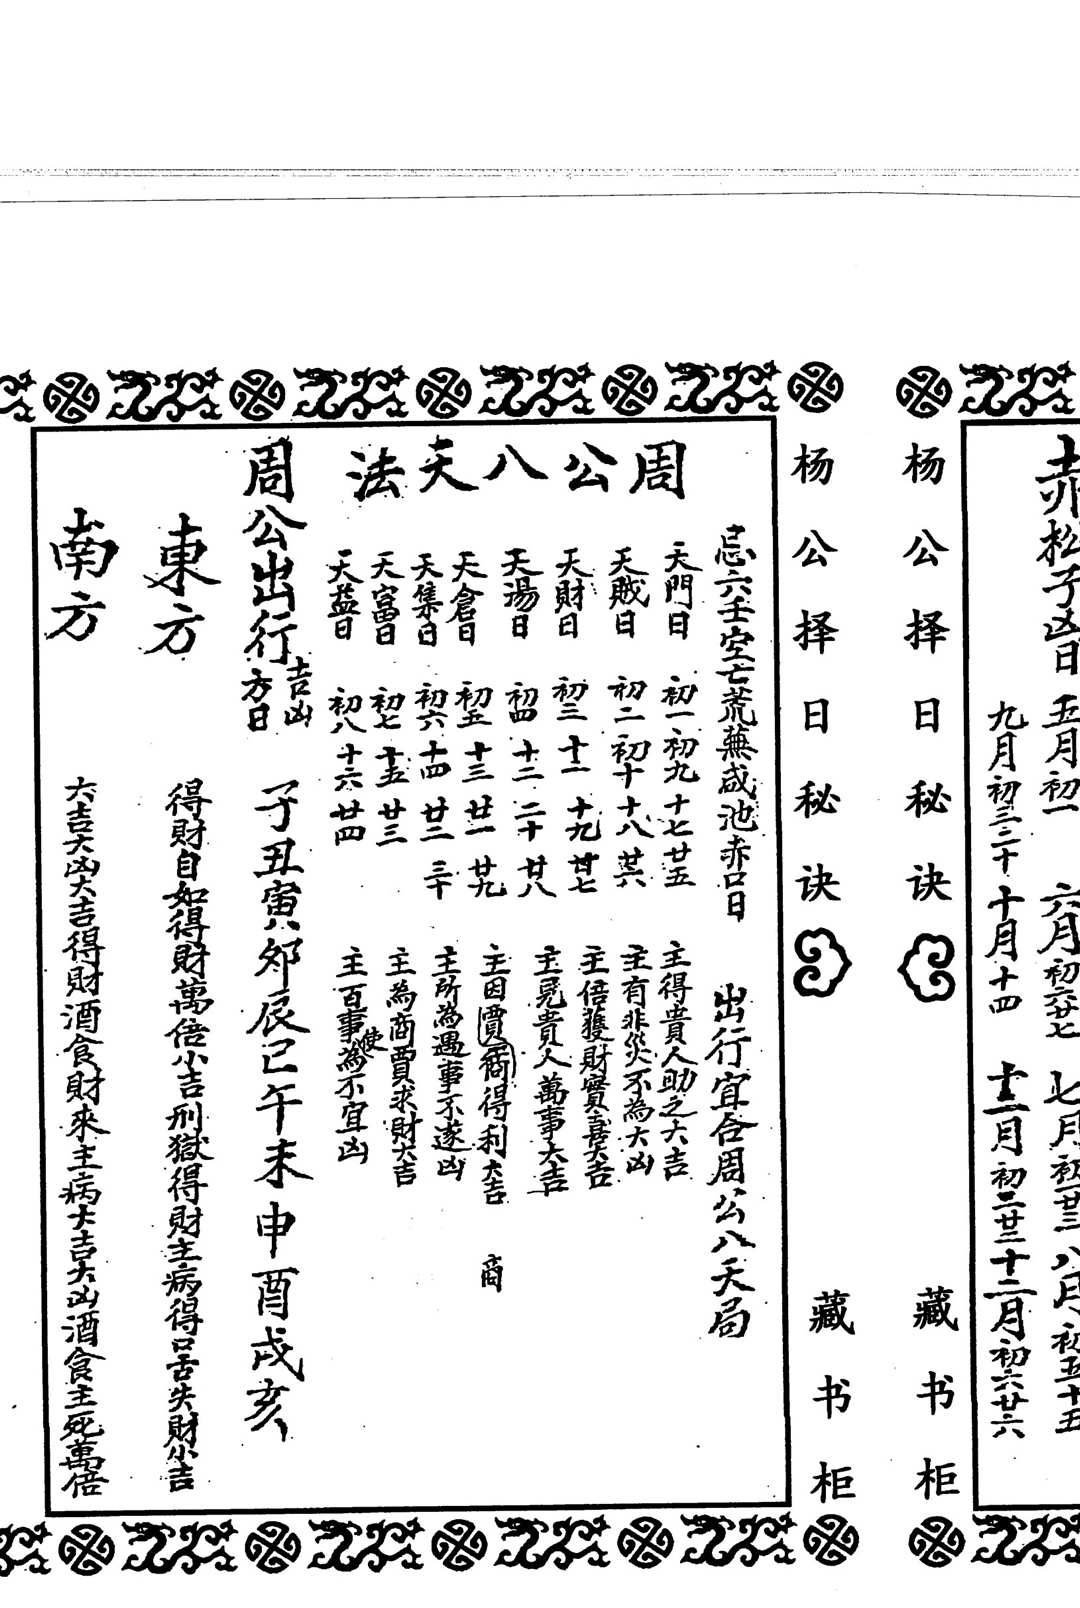 赤松子凶日 五月初一 六月初六廿七 七月初一廿三 八月初五十五
九月初三二十 十月十四 十一月初二廿三 十二月初六廿六
杨公择日秘诀 藏书柜
杨公择日秘诀 藏书柜
忌六壬空亡荒蕪咸池赤口日 出行宜合周公八天局
周公八天法
天門日 初一 初九 十七 廿五 主得貴人助之大吉
天賊日 初二 初十 十八 廿六 主有非災不為大凶
天財日 初三 十一 十九 廿七 主倍獲財寶喜大吉
天陽日 初四 十二 二十 廿八 主見貴人萬事大吉
天倉日 初五 十三 廿一 廿九 主因賈商得利大吉 商
天集日 初六 十四 廿二 三十 主所為遇事不遂凶
天富日 初七 十五 廿三 主為商賈求財大吉
天益日 初八 十六 廿四 主百事使為不宜凶
周公出行吉凶方日 子丑寅卯辰巳午未申酉戌亥
東方 得財自如得財萬倍小吉刑獄得財主病得口舌失財小吉
南方 大吉大凶大吉得財酒食財來主病大吉大凶酒食主死萬倍